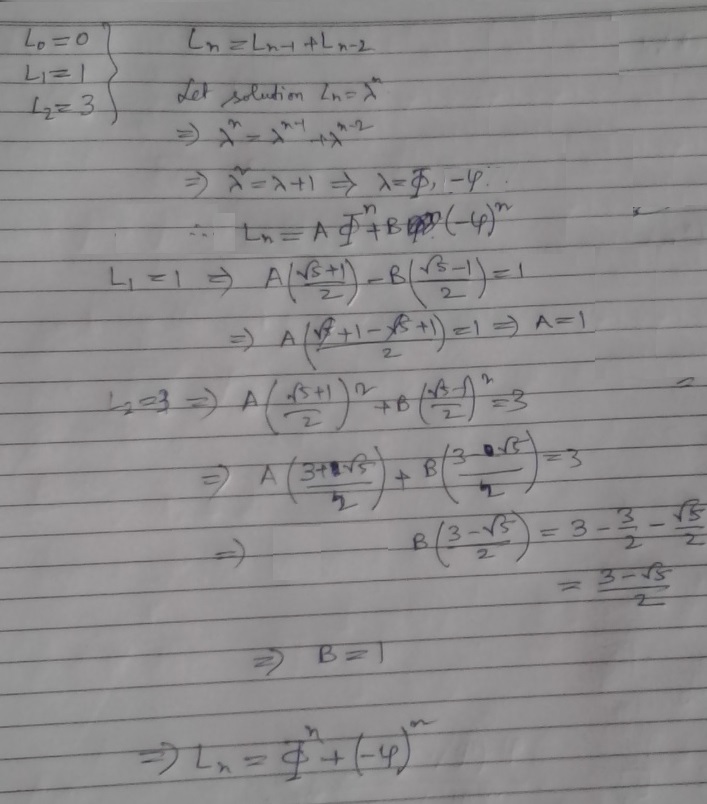 L₀ = 0
L₁ = 1
L₂ = 3
Lₙ = Lₙ₋₁ + Lₙ₋₂
Let solution Lₙ = λⁿ
⇒ λⁿ = λⁿ⁻¹ + λⁿ⁻²
⇒ λ² = λ + 1 ⇒ λ = Φ, -φ
∴ Lₙ = A Φⁿ + B (-φ)ⁿ
L₁ = 1 ⇒ A((√5+1)/2) - B((√5-1)/2) = 1
⇒ A((√5+1-√5+1)/2) = 1 ⇒ A = 1
L₂ = 3 ⇒ A((√5+1)/2)² + B((√5-1)/2)² = 3
⇒ A((3+√5)/2) + B((3-√5)/2) = 3
⇒ B((3-√5)/2) = 3 - 3/2 - √5/2
= (3-√5)/2
⇒ B = 1
⇒ Lₙ = Φⁿ + (-φ)ⁿ